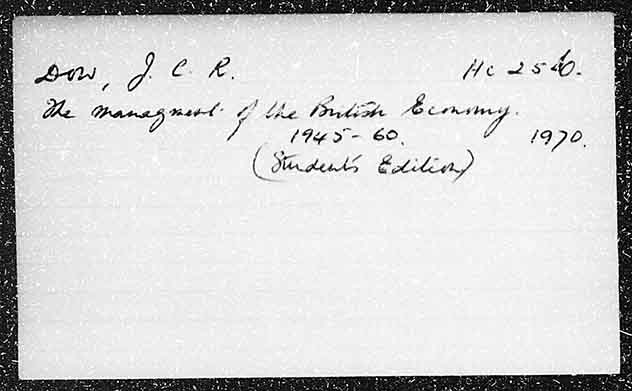 Dow, J. C. R. Hc 2560.
The managment of the British Economy.
1945-60. 1970.
(Student's Edition)